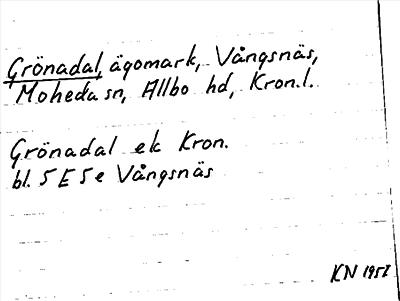 Grönadal, ägomark, Vångsnäs,
Moheda sn, Allbo hd, Kron.l.
Grönadal ek Kron.
bl. 5 E 5 e Vångsnäs
KN 1957